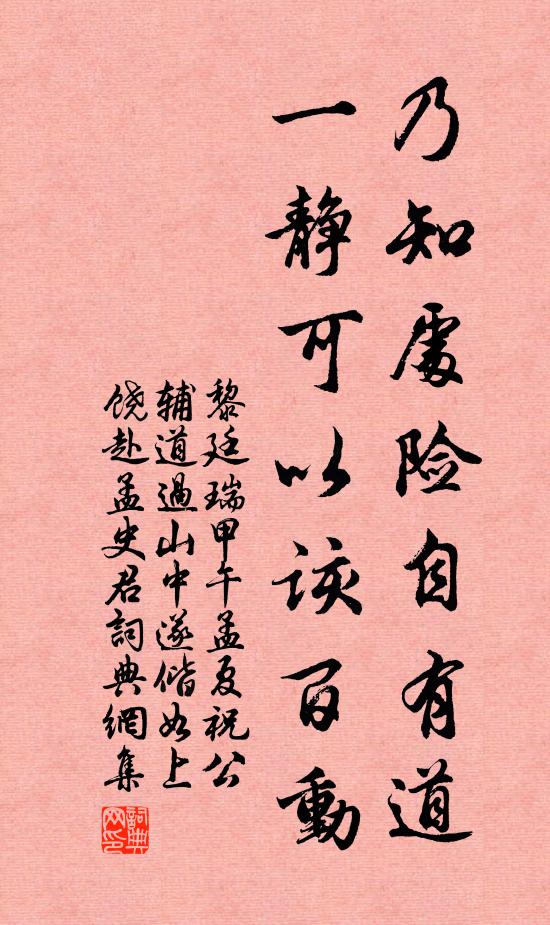 乃知處险自有道
一静可以该百動
黎廷瑞甲午孟夏祝公
辅道過山中遂偕如上
饶赴孟史君詞典網集
詞典
网印